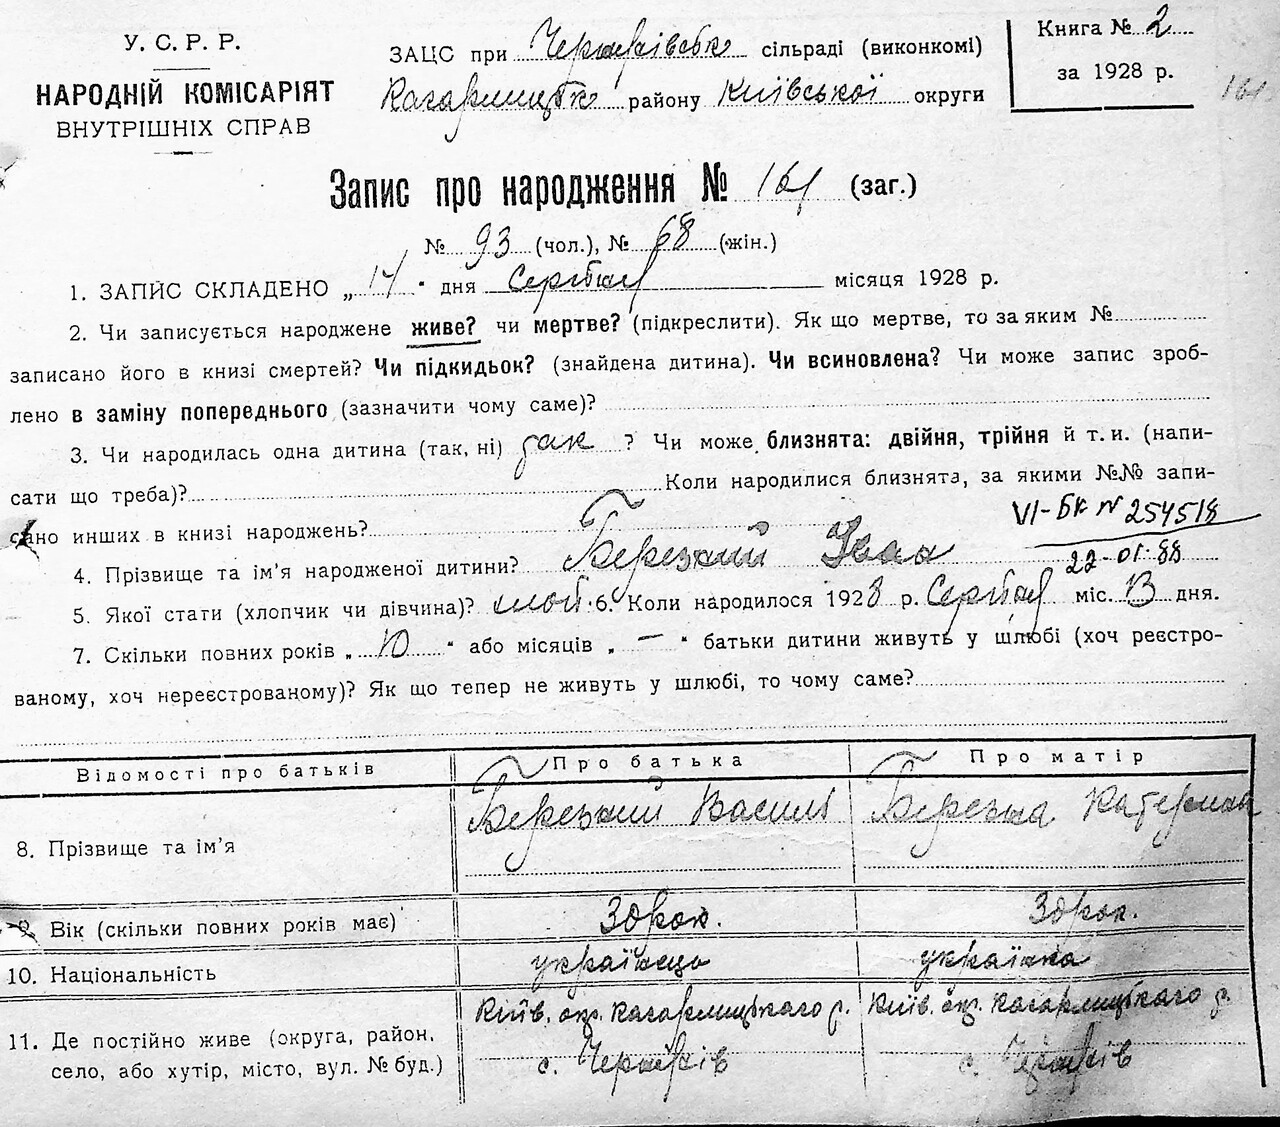 У. С. Р. Р.
НАРОДНІЙ КОМІСАРІЯТ
ВНУТРІШНІХ СПРАВ
ЗАЦС при сільраді (виконкомі)
Кагарлицьк району Київської округи
Книга № 2
за 1928 р.
161
Запис про народження № 161 (заг.)
№ 93 (чол.), № 68 (жін.)
1. ЗАПИС СКЛАДЕНО „14" дня Серпня місяця 1928 р.
2. Чи записується народжене живе? чи мертве? (підкреслити). Як що мертве, то за яким №
записано його в книзі смертей? Чи підкидьок? (знайдена дитина). Чи всиновлена? Чи може запис зроб-
лено в заміну попереднього (зазначити чому саме)?
3. Чи народилась одна дитина (так, ні) так ? Чи може близнята: двійня, трійня й т. и. (напи-
сати що треба)? Коли народилися близнята, за якими №№ запи-
сано инших в книзі народжень?
VI-БК № 254518
4. Прізвище та ім'я народженої дитини? Березкий Іван
22-01-88
5. Якої стати (хлопчик чи дівчина)? 6. Коли народилося 1928 р. Серпня міс. 13 дня.
7. Скільки повних років „10" або місяців „—" батьки дитини живуть у шлюбі (хоч реєстро-
ваному, хоч нереєстрованому)? Як що тепер не живуть у шлюбі, то чому саме?
Відомості про батьків Про батька Про матір
8. Прізвище та ім'я Березкий Василь Березка Катерина
9. Вік (скільки повних років має) 30 рок. 30 рок.
10. Національність українець українка
11. Де постійно живе (округа, район, село, або хутір, місто, вул. № буд.) Київ. окр. Кагарлицького р. Київ. окр. Кагарлицького р.
с. с.